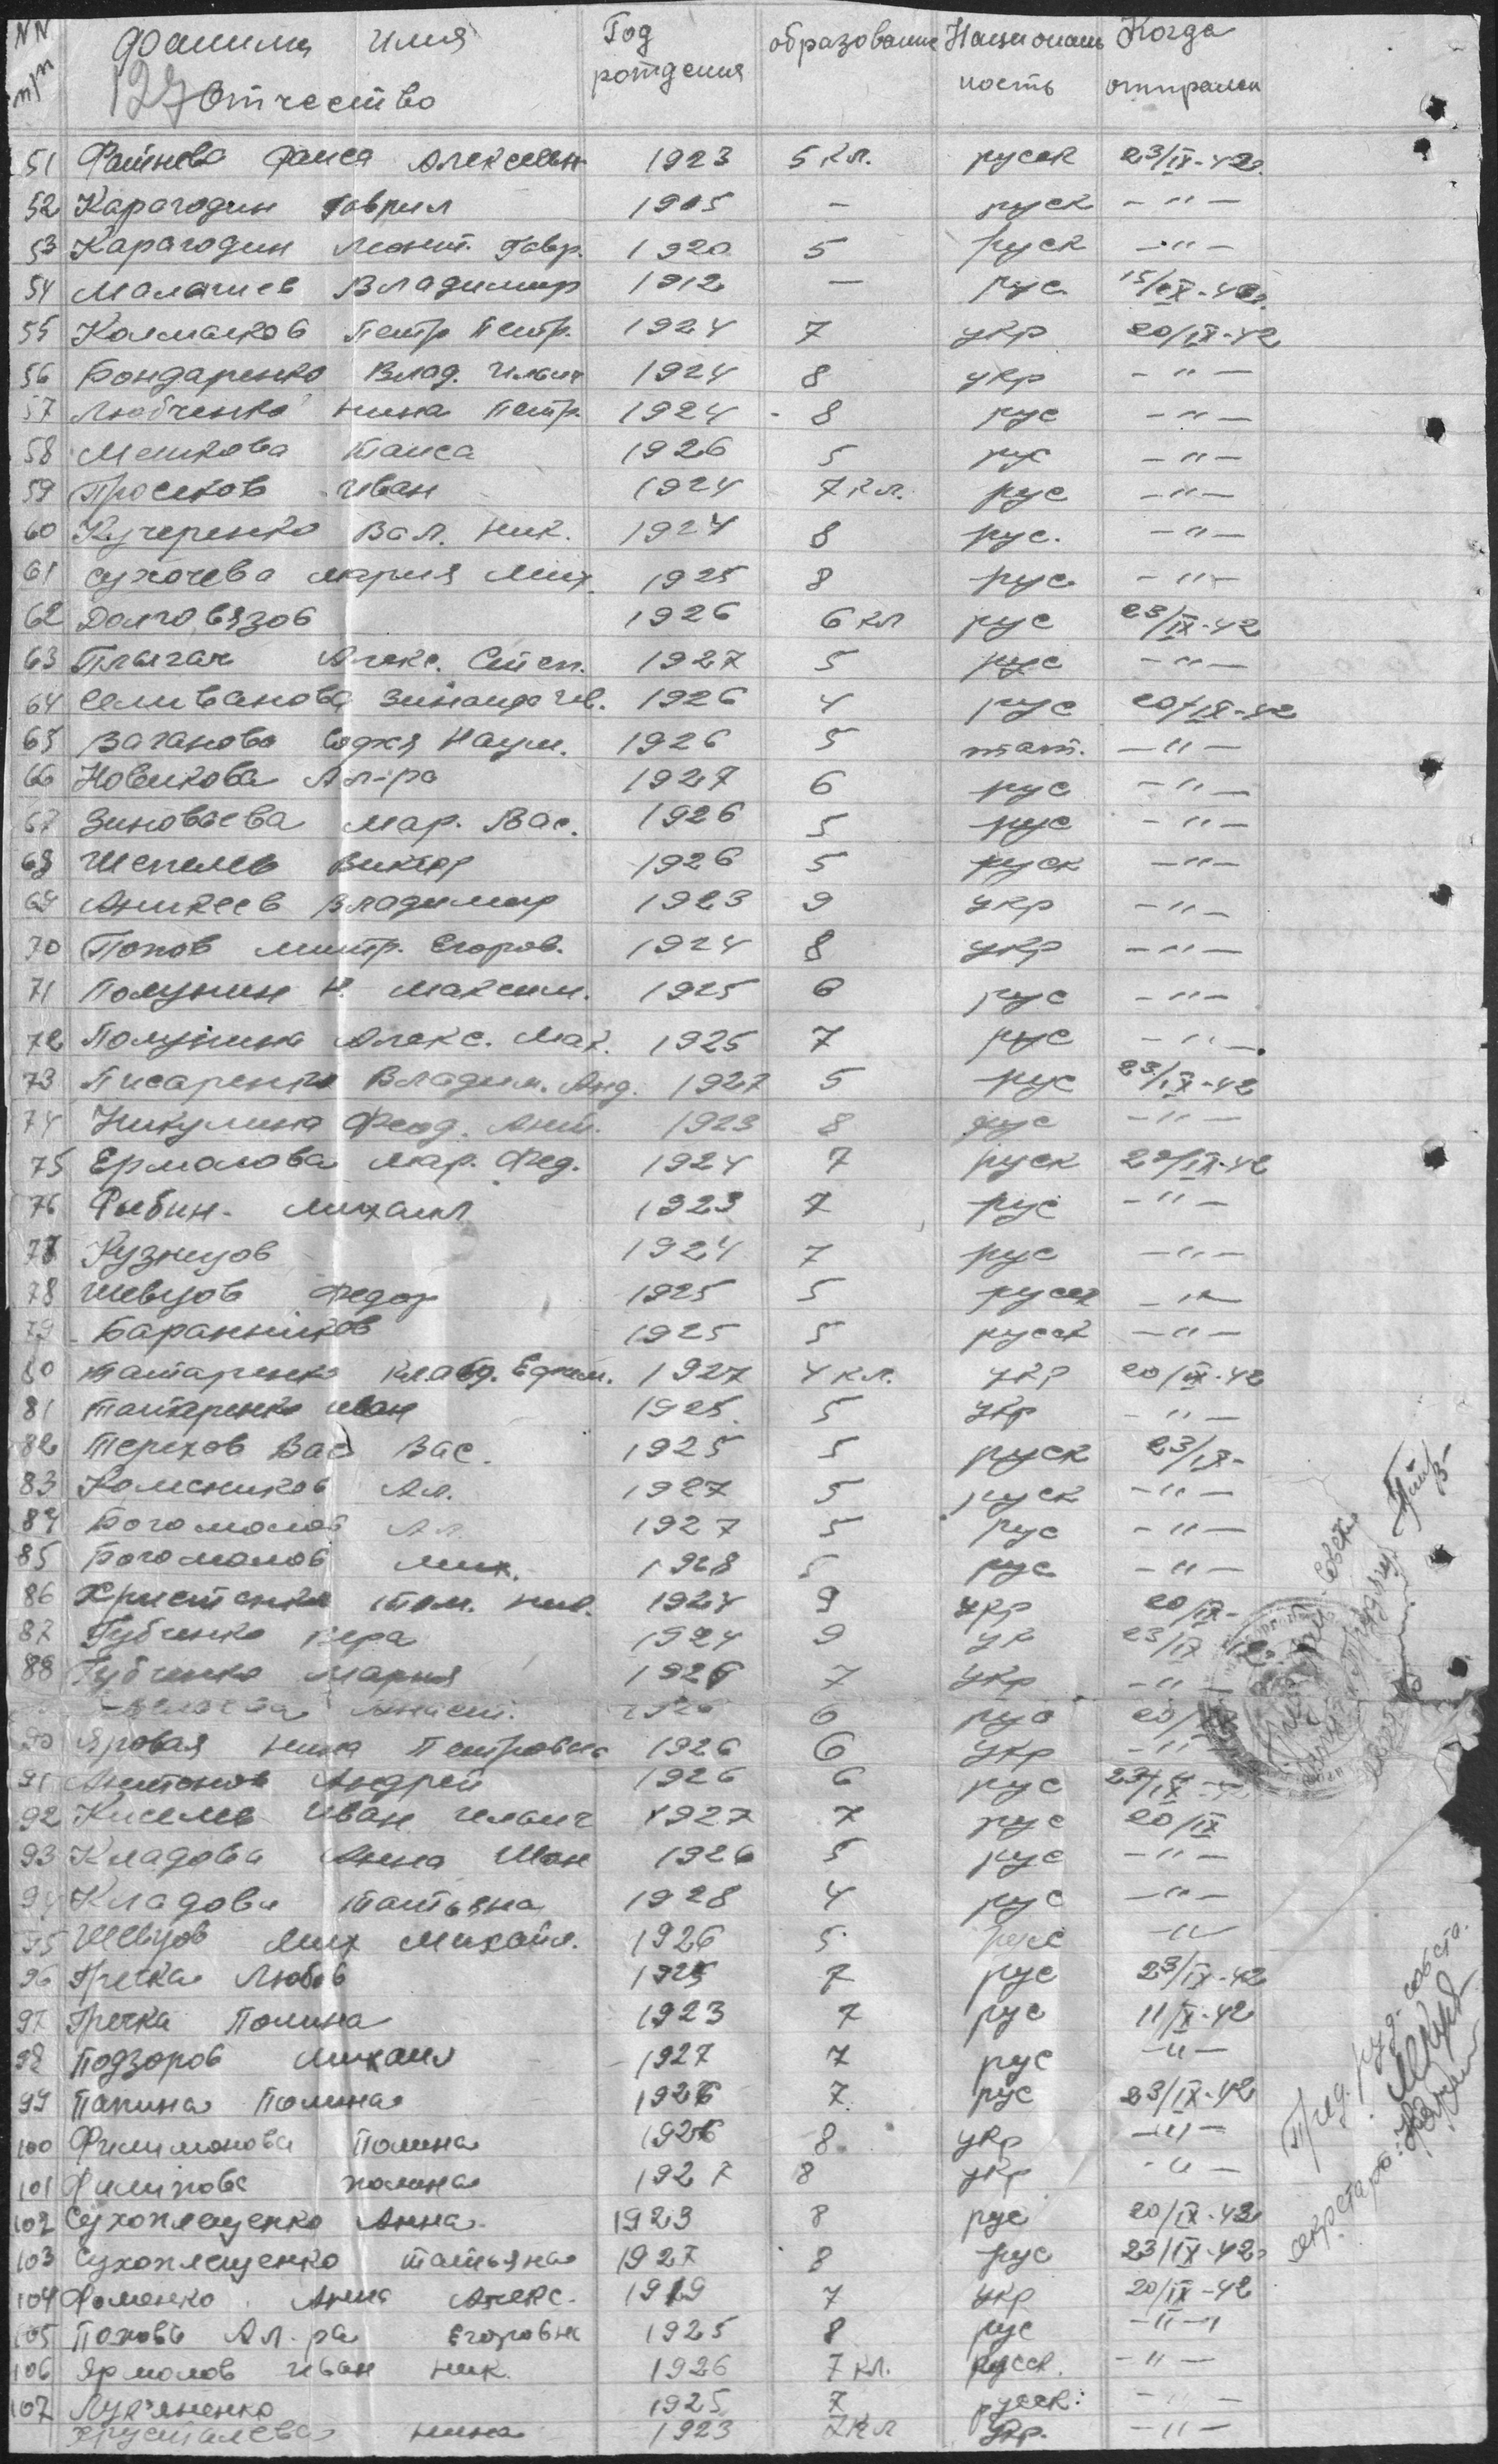 NN п/п Фамилия Имя Отчество Год рождения образование Националь ность Когда отправлен
127
51 Раиса Алексеевн 1923 5 кл. русск 23/IX-42г.
52 Карагодин Гаврил 1905 — руск —"—
53 Карагодин Леонт. Гавр. 1920 5 руск —"—
54 Малачиев Владимир 1912 — рус.
55 Колмаков Петр Петр. 1924 7 укр 20/IX-42
56 Бондаренко Влад. Ильич 1924 8 укр —"—
57 Любченко Нина Петр. 1924 8 рус —"—
58 Мешкова Таиса 1926 5 рус —"—
59 Просеков Иван 1924 7 кл. рус —"—
60 Кучеренко Вал. Ник. 1924 8 рус. —"—
61 Сухочева Мария Мих. 1925 8 рус. —"—
62 Долговязов 1926 6 кл рус 23/IX-42
63 Плыгач Алекс. Степ. 1927 5 рус —"—
64 Селиванова Зинаида Ив. 1926 4 рус 20/IX-42
65 Ваганова Софья Наум. 1926 5 тат. —"—
66 Новикова Ал-ра 1927 6 рус —"—
67 Зиновьева Мар. Вас. 1926 5 рус —"—
68 Шепелев Виктор 1926 5 руск —"—
69 Аникеев Владимир 1923 9 укр —"—
70 Попов Митр. Егоров. 1924 8 укр —"—
71 Полунин Н. Максим. 1925 6 рус —"—
72 Полунина Алекс. Мак. 1925 7 рус —"—
73 Писаренко Владим. Анд. 1927 5 рус 23/IX-42
74 Никулина Феод. Ант. 1923 8 рус —"—
75 Ермолова Мар. Фед. 1924 7 руск /IX-42
76 Рыбин Михаил 1923 7 рус —"—
77 Кузнецов 1924 7 рус —"—
78 Шевцов Федор 1925 5 русск —"—
79 Баранников 1925 5 русск —"—
80 Татаренко Клавд. Ефим. 1927 4 кл. укр 20/IX-42
81 Татаренко Иван 1925 5 укр —"—
82 Терехов Вас Вас. 1925 5 руск 23/IX-
83 Колесников Ал. 1927 5 руск —"—
84 Богомолов Ал. 1927 5 рус —"—
85 Богомолов Мих. 1928 5 рус —"—
86 Христенко Там. Ник. 1924 9 укр 20/IX-
87 Губченко Вера 1924 9 ук 23/IX
88 Губченко Мария 1926 7 укр —"—
Анаст. 1926 6 рус 20/IX
90 Яровая Нина Петровна 1926 6 укр —"—
91 Антонов Андрей 1926 6 рус 23/IX-42
92 Киселев Иван Ильич 1927 7 рус 20/IX
93 Кладова Анна 1926 5 рус —"—
94 Кладова Татьяна 1928 4 рус —"—
95 Шевцов Мих Михайл. 1926 5 рус —"—
96 Гречка Любов 1925 7 рус 23/IX-42
97 Гречка Полина 1923 7 рус 11/X-42
98 Подзоров Михаил 1927 7 рус —"—
99 Папина Полина 1926 7 рус 23/IX-42
100 Филимонова Полина 1926 8 укр —"—
101 Филипова полина 1927 8 укр —"—
102 Сухоплещенко Анна 1923 8 рус 20/IX-42
103 Сухоплещенко Татьяна 1927 8 рус 23/IX-42г
104 Фоменко Анна Алекс. 1919 7 укр 20/IX-42
105 Попова Ал-ра Егоровна 1925 8 рус —"—
106 Ярмолов Иван Ник. 1926 7 кл. русск. —"—
107 Лук'яненко 1925 7 русск. —"—
Хрусталева Нина 1923 7 кл укр. —"—
Пред. руд. совета.
секретарь: